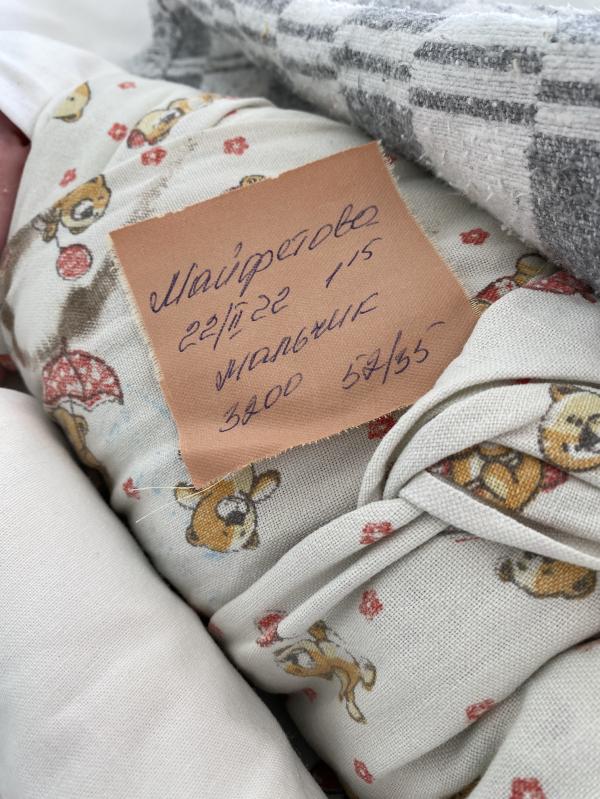 Майфетова
22/II 22 1 15
мальчик
3200 52/35